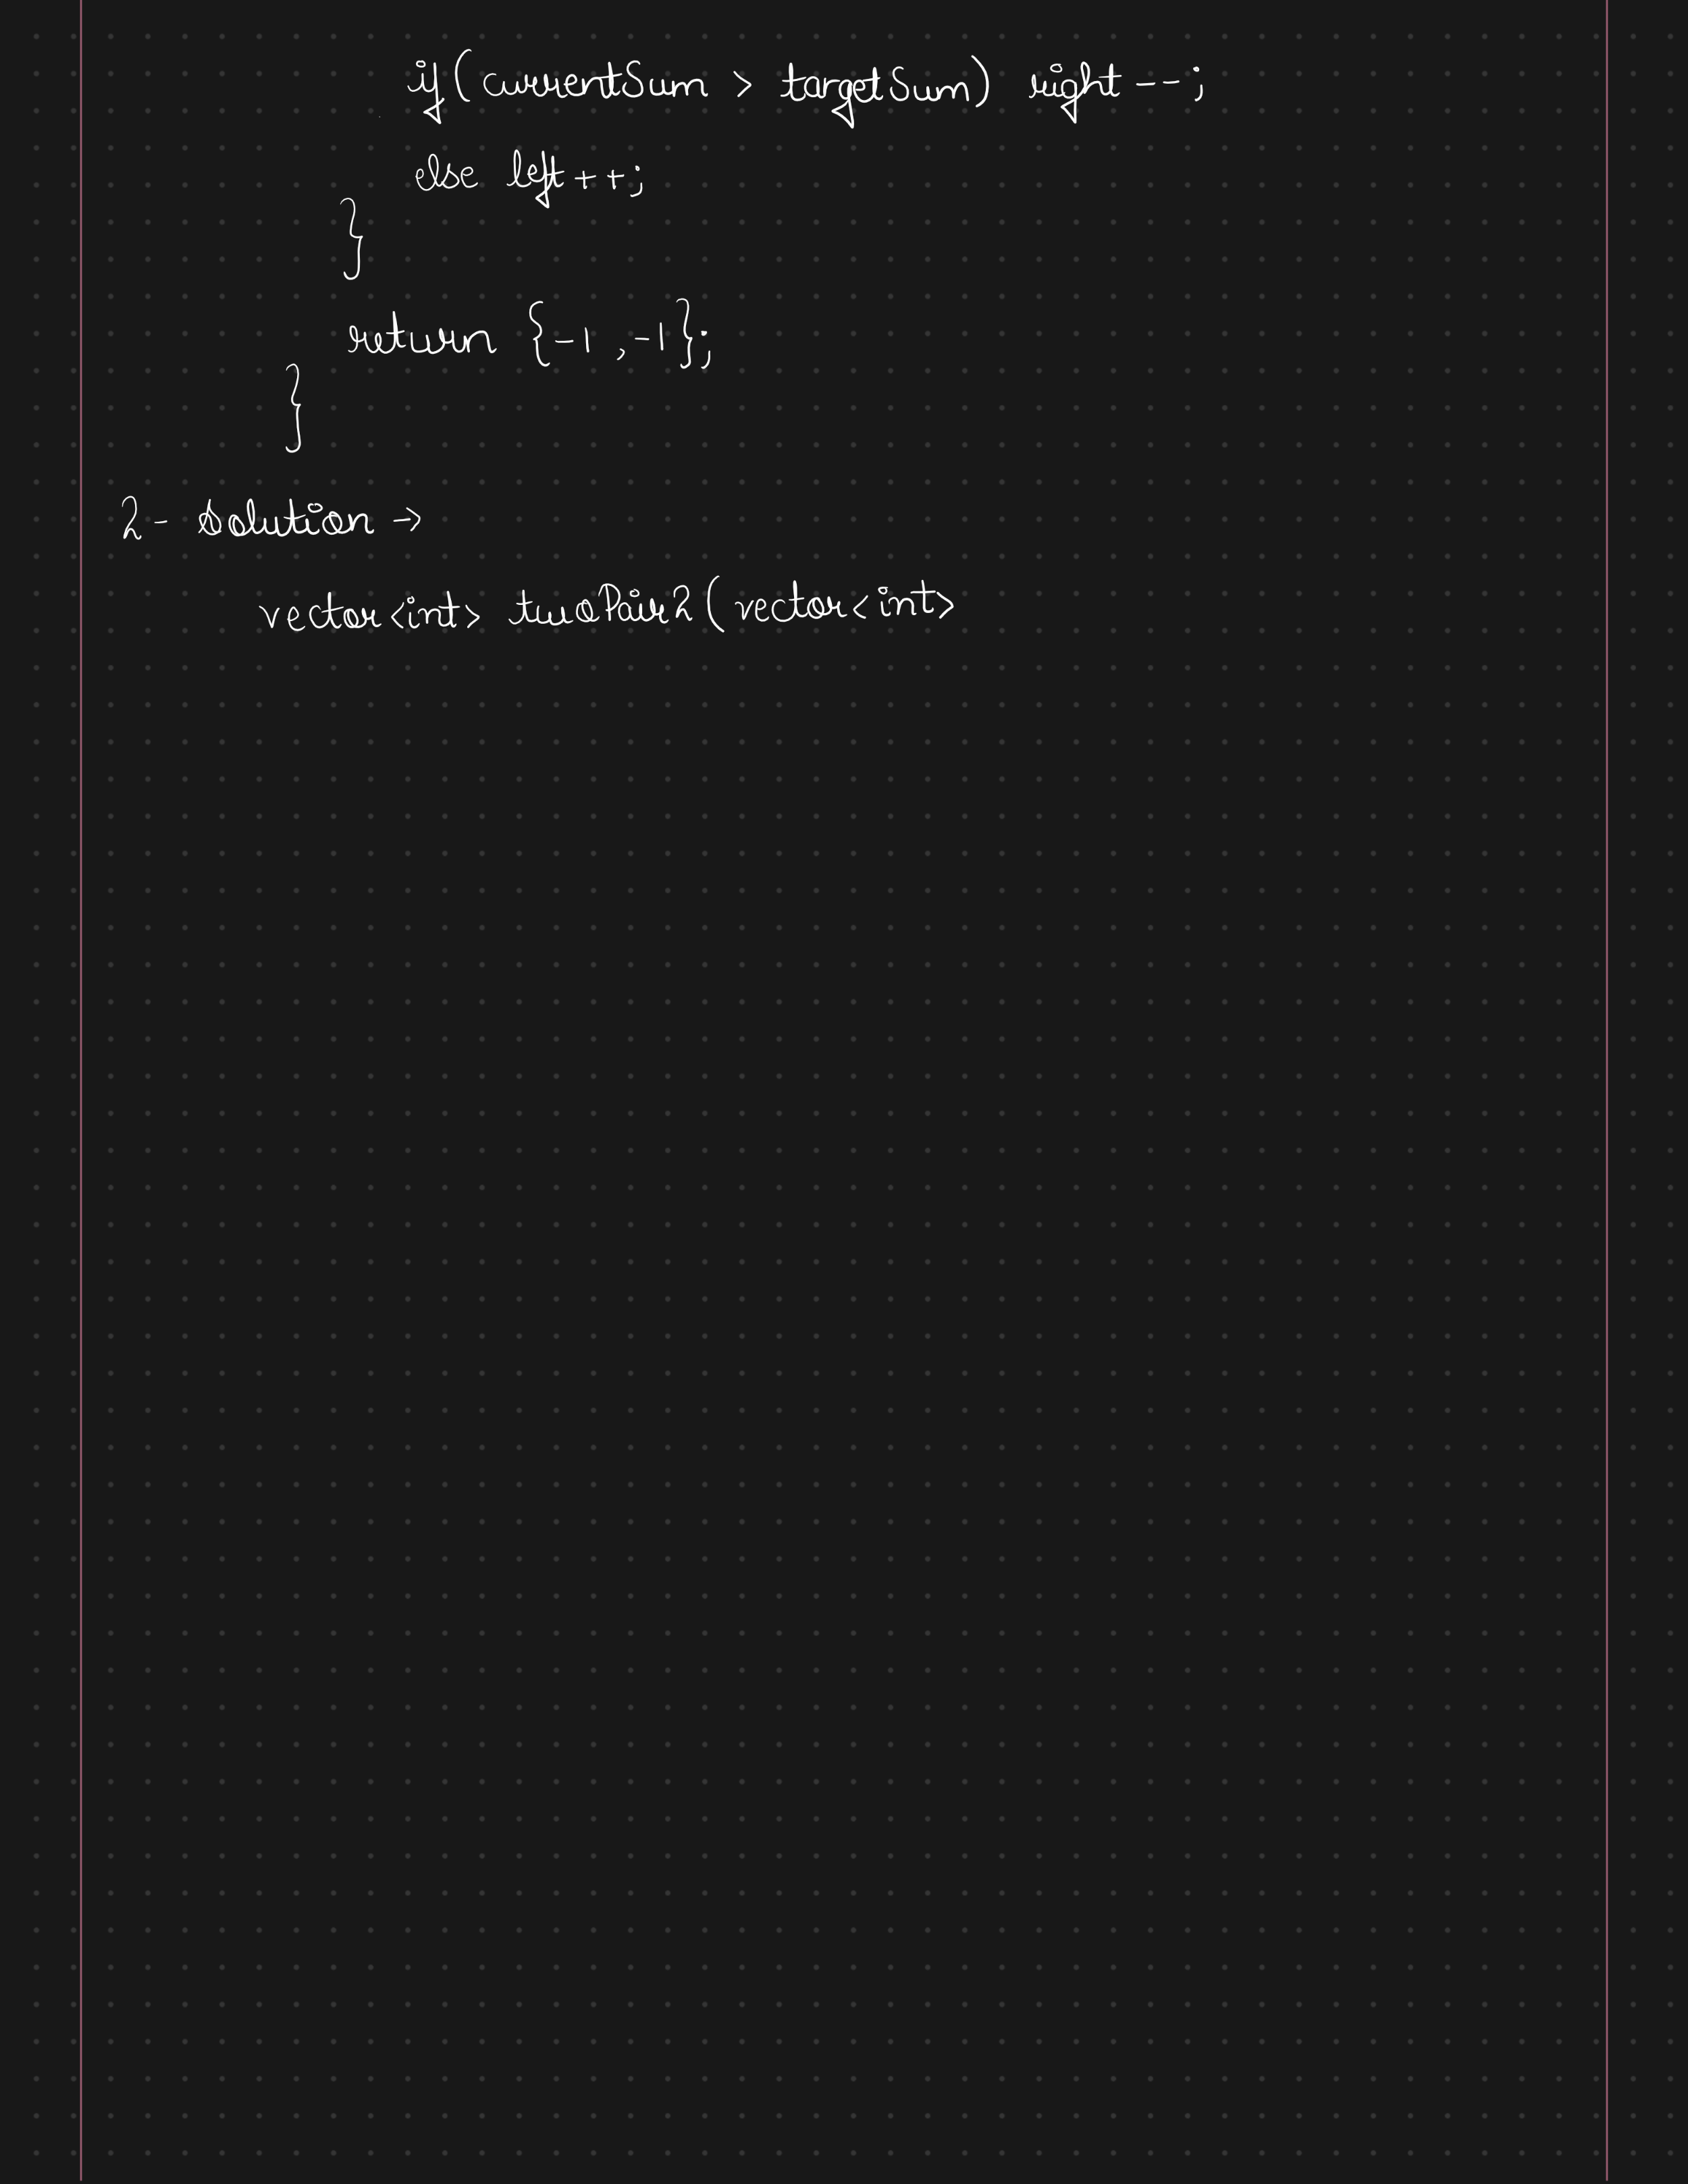 if(currentSum > targetSum) right--;
else left++;
}
return {-1,-1};
}
2- Solution →
vector<int> twoPair2(vector<int>